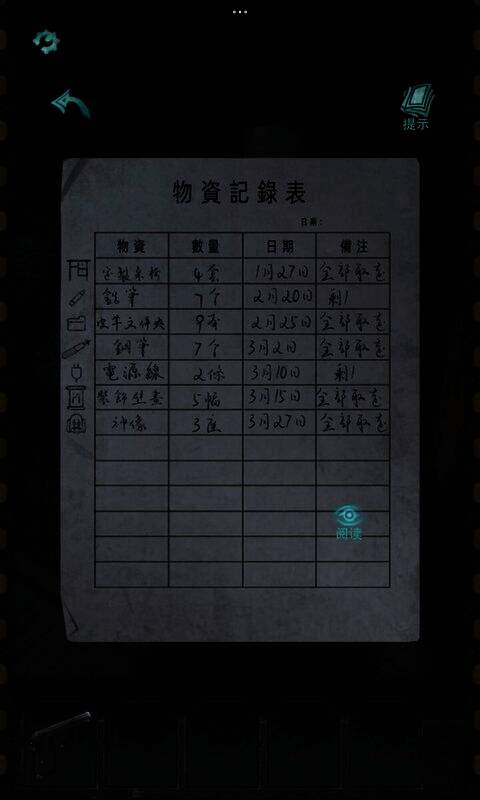 提示
物資記錄表
日期：
物資 數量 日期 備注
定製桌椅 4套 1月27日 全部取走
鉛筆 7个 2月20日 剩1
文件夾 2月25日 全部取走
鋼筆 7个 3月2日 全部取走
電源線 2條 3月10日 剩1
裝飾挂畫 5幅 3月15日 全部取走
神像 3座 3月27日 全部取走
阅读